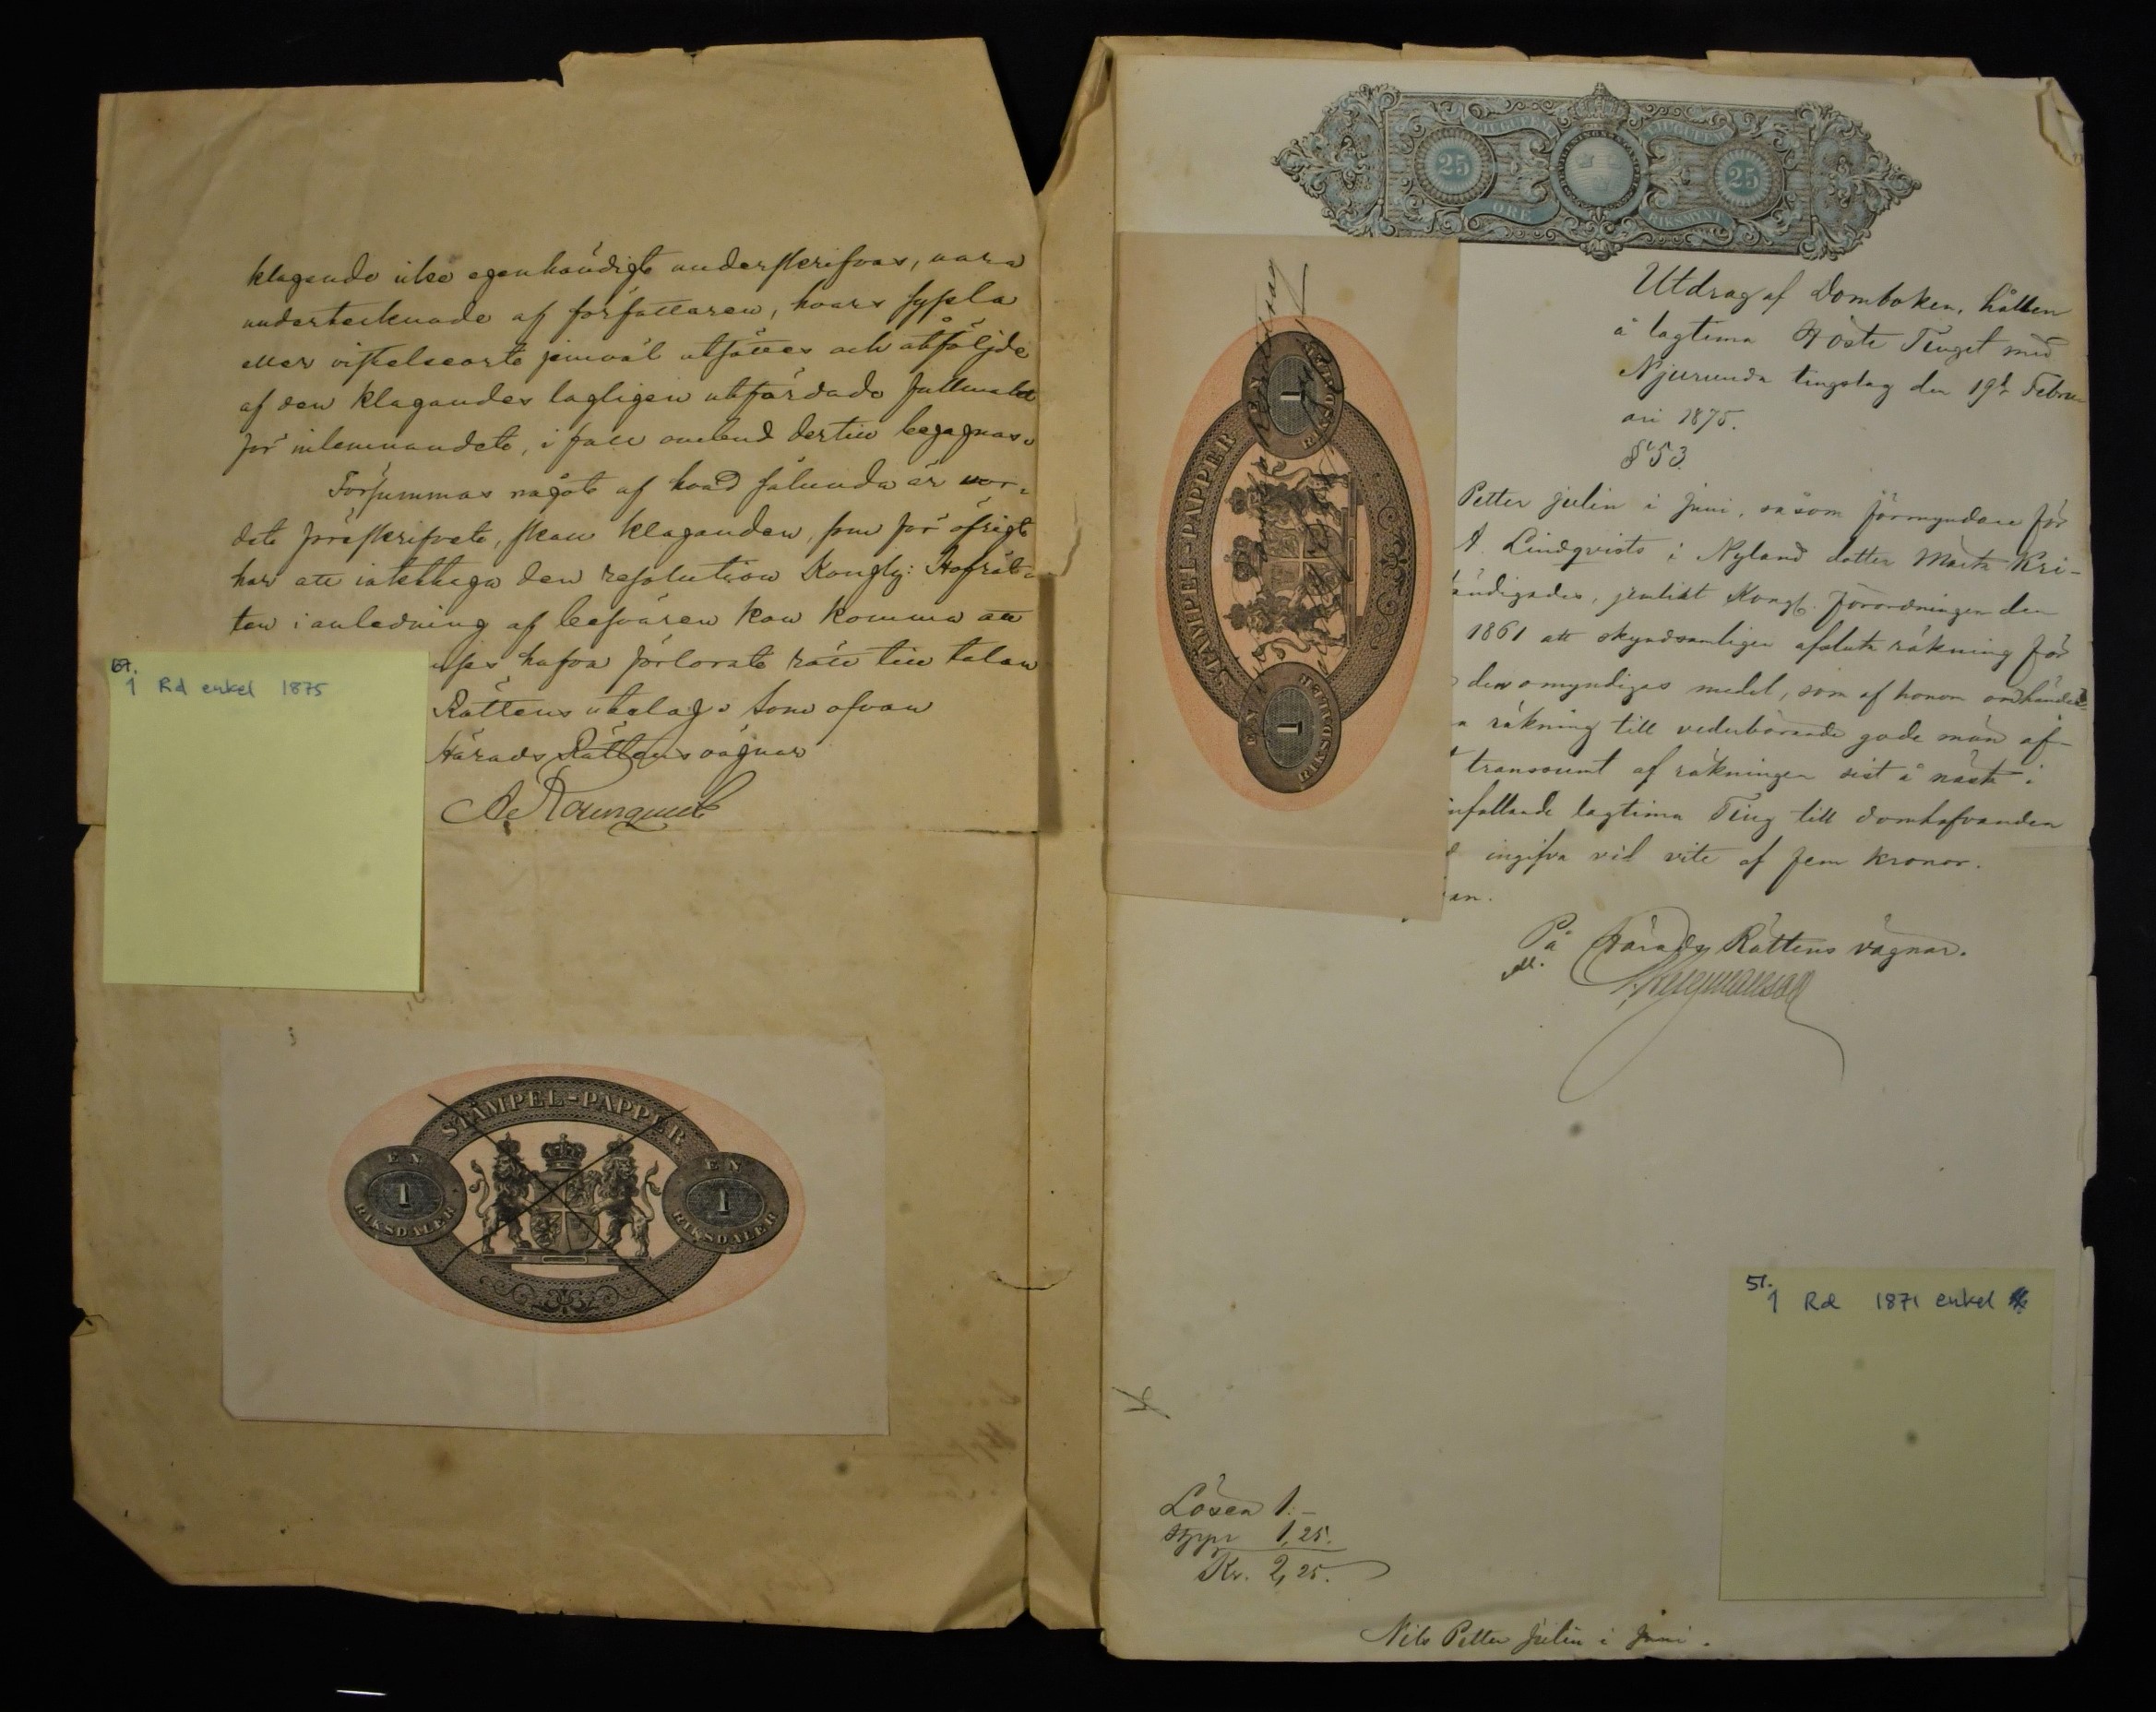 klagande icke egenhändigt underskrifvas, vara
undertecknade af författaren, hvars syssla
eller vistelseort jemväl utsättes och åtföljde
af den klagandes lagligen utfärdade fullmakt
för inlemnandet, i fall ombud dertill begagnas.
Försummas något af hvad sålunda är vor-
det föreskrifvet, skall klaganden, som för öfrigt
har att iakttaga den resolution Kongl: Hofrät-
ten i anledning af besvären kan komma att
hafva förlorat rätt till talan
Rättens utslag. Som ofvan
Härads Rättens vägnar
67.
1 Rd enkel 1875
STÄMPEL-PAPPER
EN 1 RIKSDALER
EN 1 RIKSDALER
TJUGUFEM TJUGUFEM
25 25
ÖRE RIKSMYNT
STÄMPEL-PAPPER
EN 1 RIKSDALER
EN 1 RIKSDALER
Utdrag af Domboken, hållen
å lagtima Höste Tinget med
Njurunda tingslag den 19de Febru-
ari 1875.
§ 53.
Petter Julin i Juni, såsom förmyndare för
A. Lindqvists i Nyland dotter Märta Kri-
ändigades, jemlikt Kongl. förordningen den
1861 att skyndsamligen afsluta räkning för
den omyndiges medel, som af honom omhänder-
a räkning till vederbörande gode män af-
t transsumt af räkningen sist å nästa i
nfallande lagtima Ting till domhafvanden
d ingifva vid vite af fem kronor.
an.
På Härads Rättens vägnar.
51.
1 Rd 1871 enkel
Lösen 1.–
Stpp 1,25.
Kr. 2,25.
Nils Petter Julin i Juni.